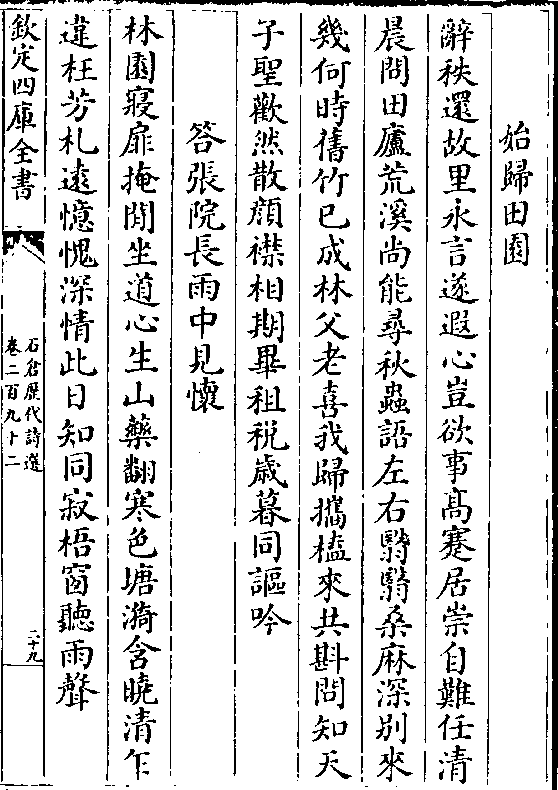 始歸田園
辭秩還故里永言遂遐心豈欲事高蹇居崇自難任清
晨問田廬荒溪尚能尋秋蟲語左右翳翳桑麻深別來
幾何時舊竹已成林父老喜我歸攜榼來共斟問知天
子聖歡然散顔襟相期畢租稅歲暮同謳吟
答張院長雨中見懷
林園寢扉掩閒坐道心生山藥翻寒色塘漪含曉清乍
違枉芳札遠憶愧深情此日知同寂梧窗聽雨聲
欽定四庫全書
石倉歷代詩選
卷二百九十二
二十九